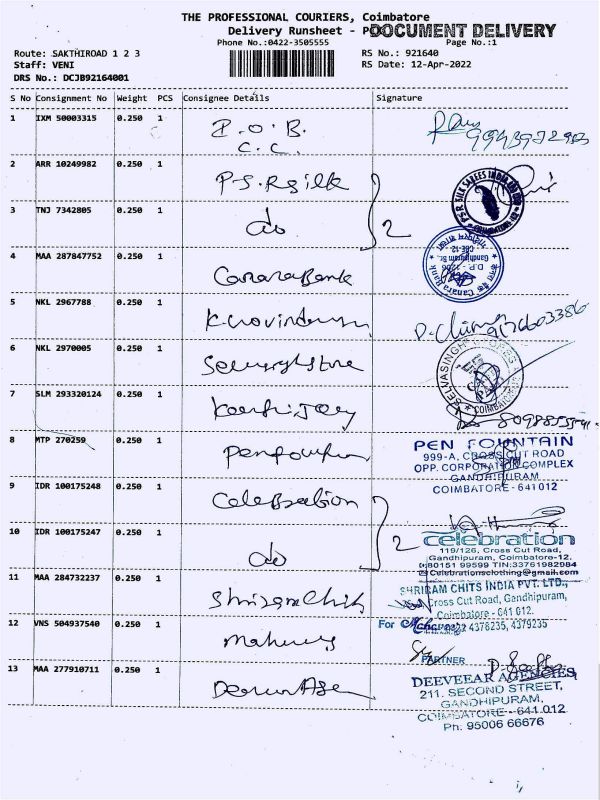 THE PROFESSIONAL COURIERS, Coimbatore
Delivery Runsheet - P
DOCUMENT DELIVERY
Phone No.:0422-3505555
Page No.:1
Route: SAKTHIROAD 1 2 3
RS No.: 921640
Staff: VENI
RS Date: 12-Apr-2022
DRS No.: DCJB92164001
S No Consignment No Weight PCS Consignee Details Signature
1 IXM 50003315 0.250 1 P.O.B.
C.C.
2 ARR 10249982 0.250 1 P.S.R Silk
P.S.R. SILK SAREES INDIA
3 TNJ 7342805 0.250 1 do 2
4 MAA 287847752 0.250 1 Canara Bank
Canara Bank
D.P. - 1206
Gandhipuram
CBE-12
5 NKL 2967788 0.250 1 K. Govinda
9176603386
6 NKL 2970005 0.250 1
SELVASINGH STORES
COIMBATORE
7 SLM 293320124 0.250 1
8 MTP 270259 0.250 1 Penfountain
PEN FOUNTAIN
999-A, CROSS CUT ROAD
OPP. CORPORATION COMPLEX
GANDHIPURAM
COIMBATORE - 641 012
9 IDR 100175248 0.250 1 Celebration
10 IDR 100175247 0.250 1 do 2
celebration
119/126, Cross Cut Road,
Gandhipuram, Coimbatore-12.
80151 99599 TIN:33761982984
Celebrationsclothing@gmail.com
11 MAA 284732237 0.250 1 Shriram Chits
SHRIRAM CHITS INDIA PVT. LTD.,
Cross Cut Road, Gandhipuram,
Coimbatore - 641 012.
4378235, 4379235
12 VNS 504937540 0.250 1
For
PARTNER
13 MAA 277910711 0.250 1
DEEVEEAR AGENCIES
211. SECOND STREET,
GANDHIPURAM,
COIMBATORE - 641 012
Ph. 95006 66676